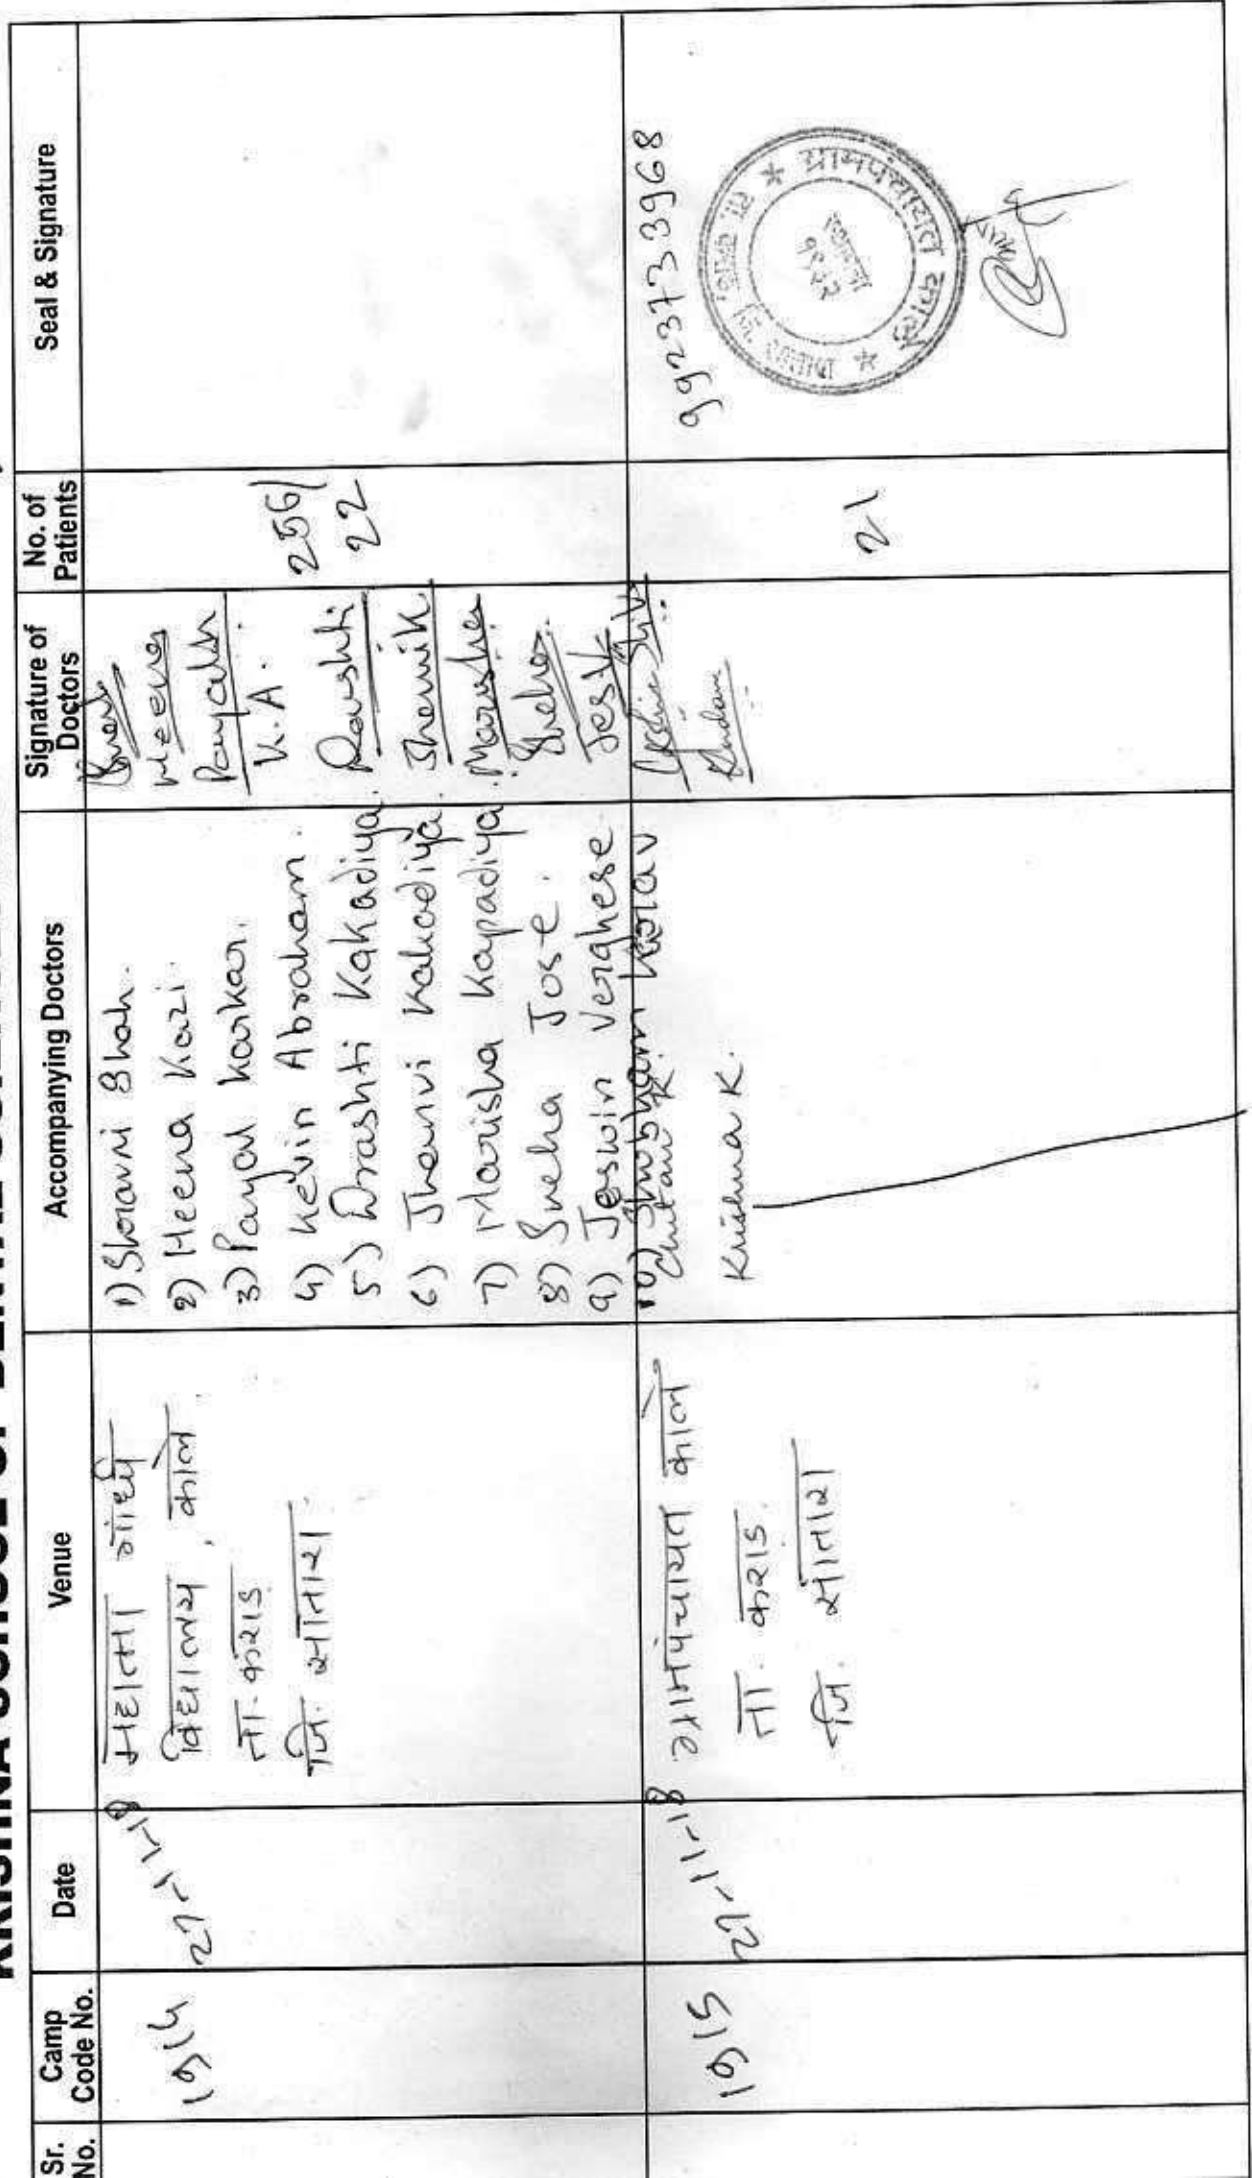 KRISHNA SCHOOL OF DENTAL SCIENCES
Sr. No.
Camp Code No.
Date
Venue
Accompanying Doctors
Signature of Doctors
No. of Patients
Seal & Signature
1914
27-11-18
महात्मा गांधी
विद्यालय, काले
ता. कराड
जि. सातारा.
1) Shravni Shah.
2) Heena Kazi.
3) Payal Karkar.
4) Kevin Abraham.
5) Drashti Kakadiya.
6) Jhanvi Kakadiya.
7) Marisha Kapadiya
8) Sneha Jose.
9) Jeswin Verghese.
10) Shubham
Heena
Payalsh
K.A.
Drashti
Jhanvik
Marisha
Sneha
JesV
256/
22
1915
27-11-18
ग्रामपंचायत काले
ता. कराड.
जि. सातारा
Krishna K.
21
9923733968
ग्रामपंचायत काले